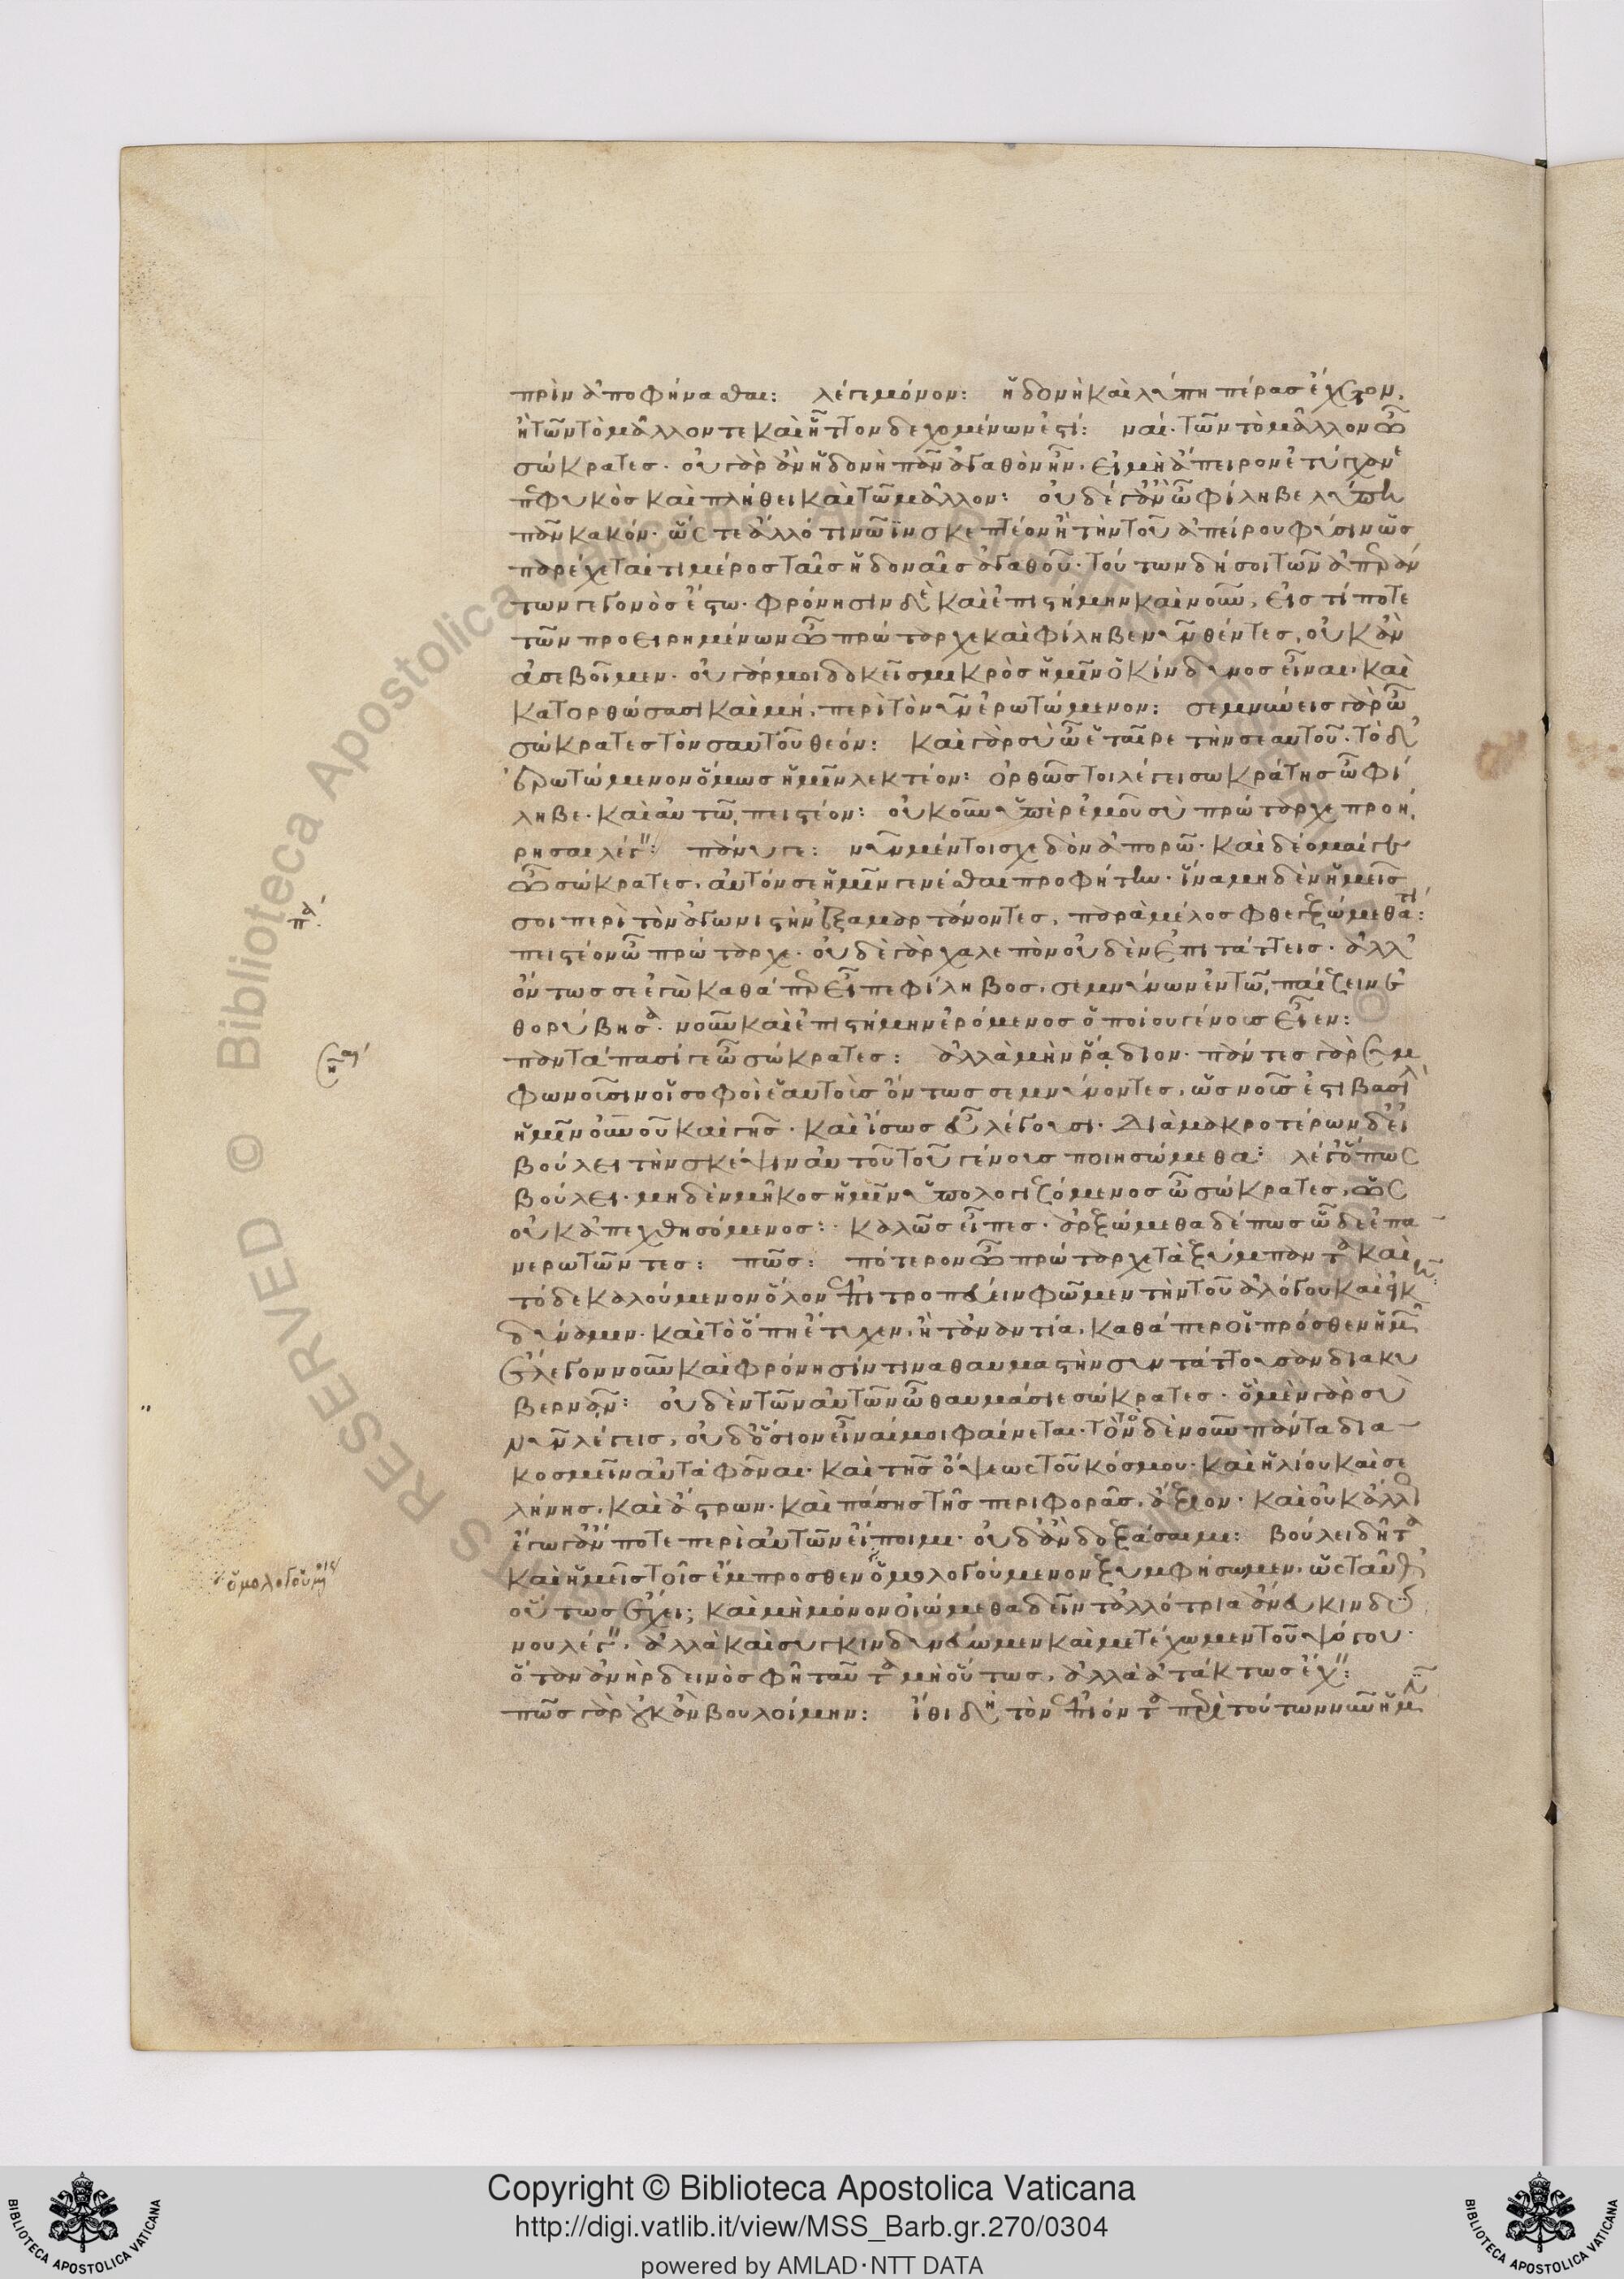 πρὶν ἀποφήνασθαι: λέγε μόνον: ἡδονὴ καὶ λύπη πέρας ἔχετον,
ἢ τῶν τὸ μᾶλλόν τε καὶ ἧττον δεχομένων ἐστί: ναί. τῶν τὸ μᾶλλον ὦ
σώκρατες. οὐ γὰρ ἂν ἡδονὴ πᾶν ἀγαθὸν ἦν. εἰ μὴ ἄπειρον ἐτύγχανε
πεφυκὸς καὶ πλήθει καὶ τῶ μᾶλλον: οὐδέ γ' ἂν ὦ φίληβε λύπη
πᾶν κακόν. ὥστε ἄλλό τι νῶϊν σκεπτέον ἢ τὴν τοῦ ἀπείρου φύσιν ὡς
παρέχεταί τι μέρος ταῖς ἡδοναῖς ἀγαθοῦ. τούτων δή σοι τῶν ἀπεράν
των γεγονὸς ἔστω. φρόνησιν δὲ καὶ ἐπιστήμην καὶ νοῦν, εἰς τί ποτε
τῶν προειρημένων ὦ πρώταρχε καὶ φίληβε νῦν θέντες, οὐκ ἂν
ἀσεβοῖμεν. οὐ γάρ μοι δοκεῖ σμικρὸς ἡμῖν ὁ κίνδυνος εἶναι. καὶ
κατορθώσασι καὶ μή, περὶ τὸ νῦν ἐρωτώμενον: σεμνύνεις γὰρ ὦ
σώκρατες τὸν σαυτοῦ θεόν: καὶ γὰρ σὺ ὦ ἑταῖρε τὴν σεαυτοῦ. τὸ δ'
ἐρωτώμενον ὅμως ἡμῖν λεκτέον: ὀρθῶς τοι λέγει σωκράτης ὦ φί
ληβε. καὶ αὐτῶ πειστέον: οὐκοῦν ὑπὲρ ἐμοῦ σὺ πρώταρχε προή
ρησαι λέγ": πάνυ γε: νῦν μέντοι σχεδὸν ἀπορῶ. καὶ δέομαί γε
ὦ σώκρατες, αὐτόν σε ἡμῖν γενέσθαι προφήτην. ἵνα μηδὲν ἡμεῖς
σοι περὶ τὸν ἀγωνιστὴν ἐξαμαρτάνοντες, παρὰ μέλος φθεγξώμεθά τι:
πειστέον ὦ πρώταρχε. οὐδὲ γὰρ χαλεπὸν οὐδὲν ἐπιτάττεις. ἀλλ'
ὄντως σε ἐγὼ καθάπερ εἶπε φίληβος, σεμνύνων ἐν τῶ παίζειν ἐ
θορύβησα. νοῦν καὶ ἐπιστήμην ἐρόμενος ὁποίου γένους εἶεν:
παντάπασί γε ὦ σώκρατες: ἀλλὰ μὴν ῥάδιον. πάντες γὰρ συμ
φωνοῦσιν οἱ σοφοὶ ἑαυτοὺς ὄντως σεμνύνοντες, ὡς νοῦς ἐστι βασιλ
ἡμῖν οὐνοῦ καὶ γῆς. καὶ ἴσως εὖ λέγουσι. Διὰ μακροτέρων δ' εἰ
βούλει τὴν σκέψιν αὐτοῦ τοῦ γένους ποιησώμεθα: λέγ' ὅπως
βούλει. μηδὲν μῆκος ἡμῖν ὑπολογιζόμενος ὦ σώκρατες, ὡς
οὐκ ἀπεχθησόμενος: καλῶς εἶπες. ἀρξώμεθα δέ πως ὧδε ἐπα
νερωτῶντες: πῶς: πότερον ὦ πρώταρχε τὰ ξύμπαντα καὶ
τόδε καλούμενον ὅλον ἐπιτροπεύειν φῶμεν τὴν τοῦ ἀλόγου καὶ εἰκῆ
δύναμιν. καὶ τὸ ὅπη ἔτυχεν, ἢ τἀναντία, καθάπερ οἱ πρόσθεν ἡμῶν
ἔλεγον νοῦν καὶ φρόνησίν τινα θαυμαστὴν συντάττουσαν διακυ
βερνᾶν: οὐδὲν τῶν αὐτῶν ὦ θαυμάσιε σώκρατες. ὃ μὲν γὰρ σὺ
νῦν λέγεις, οὐδ' ὅσιον εἶναί μοι φαίνεται. τὸ δὲ νοῦν πάντα δια
κοσμεῖν αὐτὰ φάναι. καὶ τῆς ὄψεως τοῦ κόσμου. καὶ ἡλίου καὶ σε
λήνης. καὶ ἄστρων. καὶ πάσης τῆς περιφορᾶς, ἄξιον. καὶ οὐκ ἄλλως
ἔγωγ' ἄν ποτε περὶ αὐτῶν εἴποιμι. οὐδ' ἂν δοξάσαιμι: βούλει δῆτα
καὶ ἡμεῖς τοῖς ἔμπροσθεν ὁμολογούμενον ξυμφήσωμεν. ὡς ταῦθ'
οὕτως ἔχει; καὶ μὴ μόνον οἰώμεθα δεῖν τἀλλότρια ἄνευ κινδύ
νου λέγ". ἀλλὰ καὶ συγκινδυνεύωμεν καὶ μετέχωμεν τοῦ ψόγου.
ὅταν ἀνὴρ δεινὸς φῆ ταῦτα μὴ οὕτως, ἀλλὰ ἀτάκτως ἔχ":
πῶς γὰρ οὐκ ἂν βουλοίμην: ἴθι δὴ τὸν ἐπιόντα περὶ τούτων νῦν ἡμῖν
ὁμολογούμενοις
Copyright © Biblioteca Apostolica Vaticana
http://digi.vatlib.it/view/MSS_Barb.gr.270/0304
powered by AMLAD·NTT DATA
BIBLIOTECA APOSTOLICA VATICANA
BIBLIOTECA APOSTOLICA VATICANA